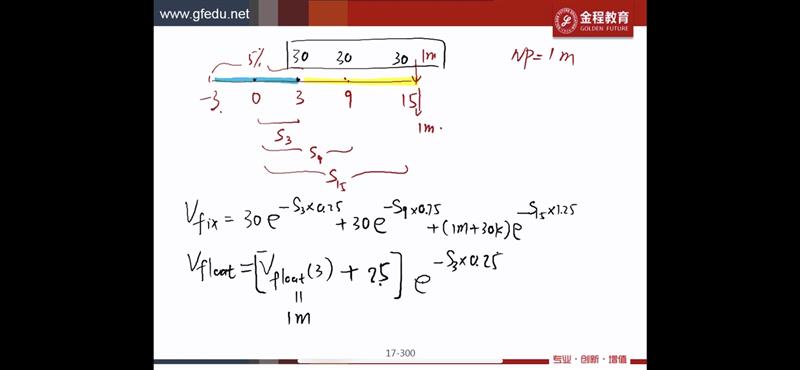 www.gfedu.net
金程教育
GOLDEN FUTURE
5% 30 30 30 1m NP=1m
-3 0 3 9 15
1m.
S3
S9
S15
Vfix = 30e^-S3×0.25 + 30e^-S9×0.75 + (1m+30k)e^-S15×1.25
Vfloat = [Vfloat(3) + 25] e^-S3×0.25
||
1m
17-300
专业·创新·增值